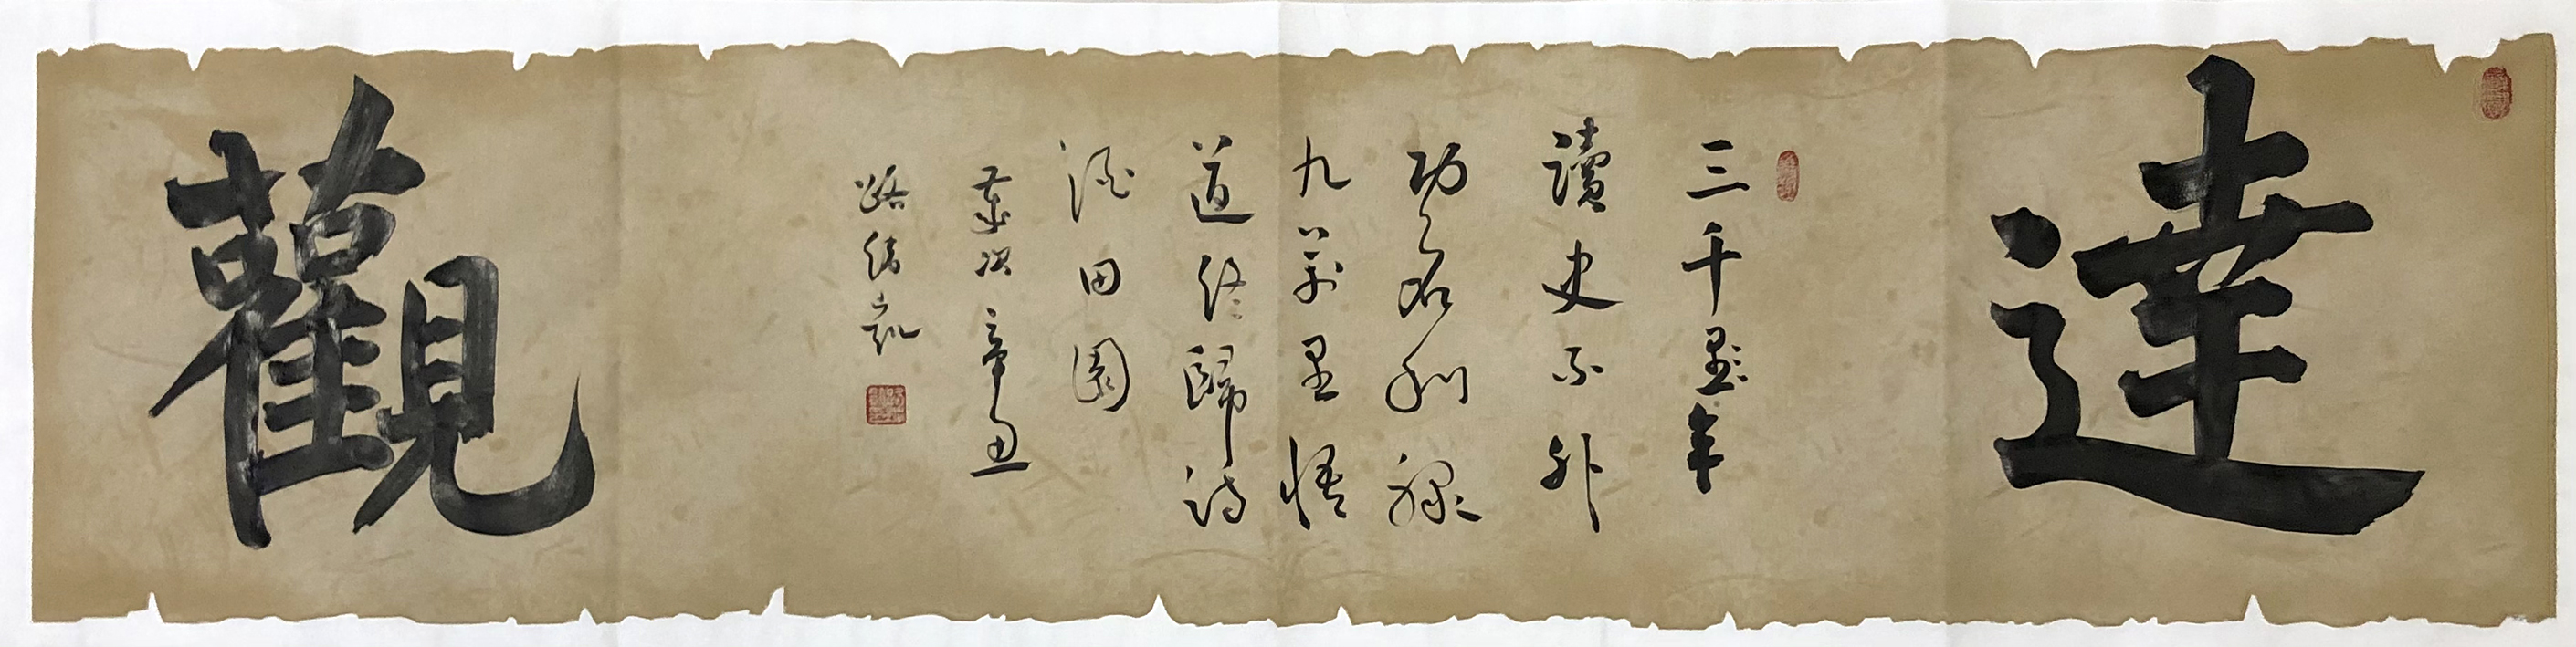 達
三千年
讀史不外
功名利祿
九萬里悟
道終歸詩
酒田園
歲次辛丑
路結
觀